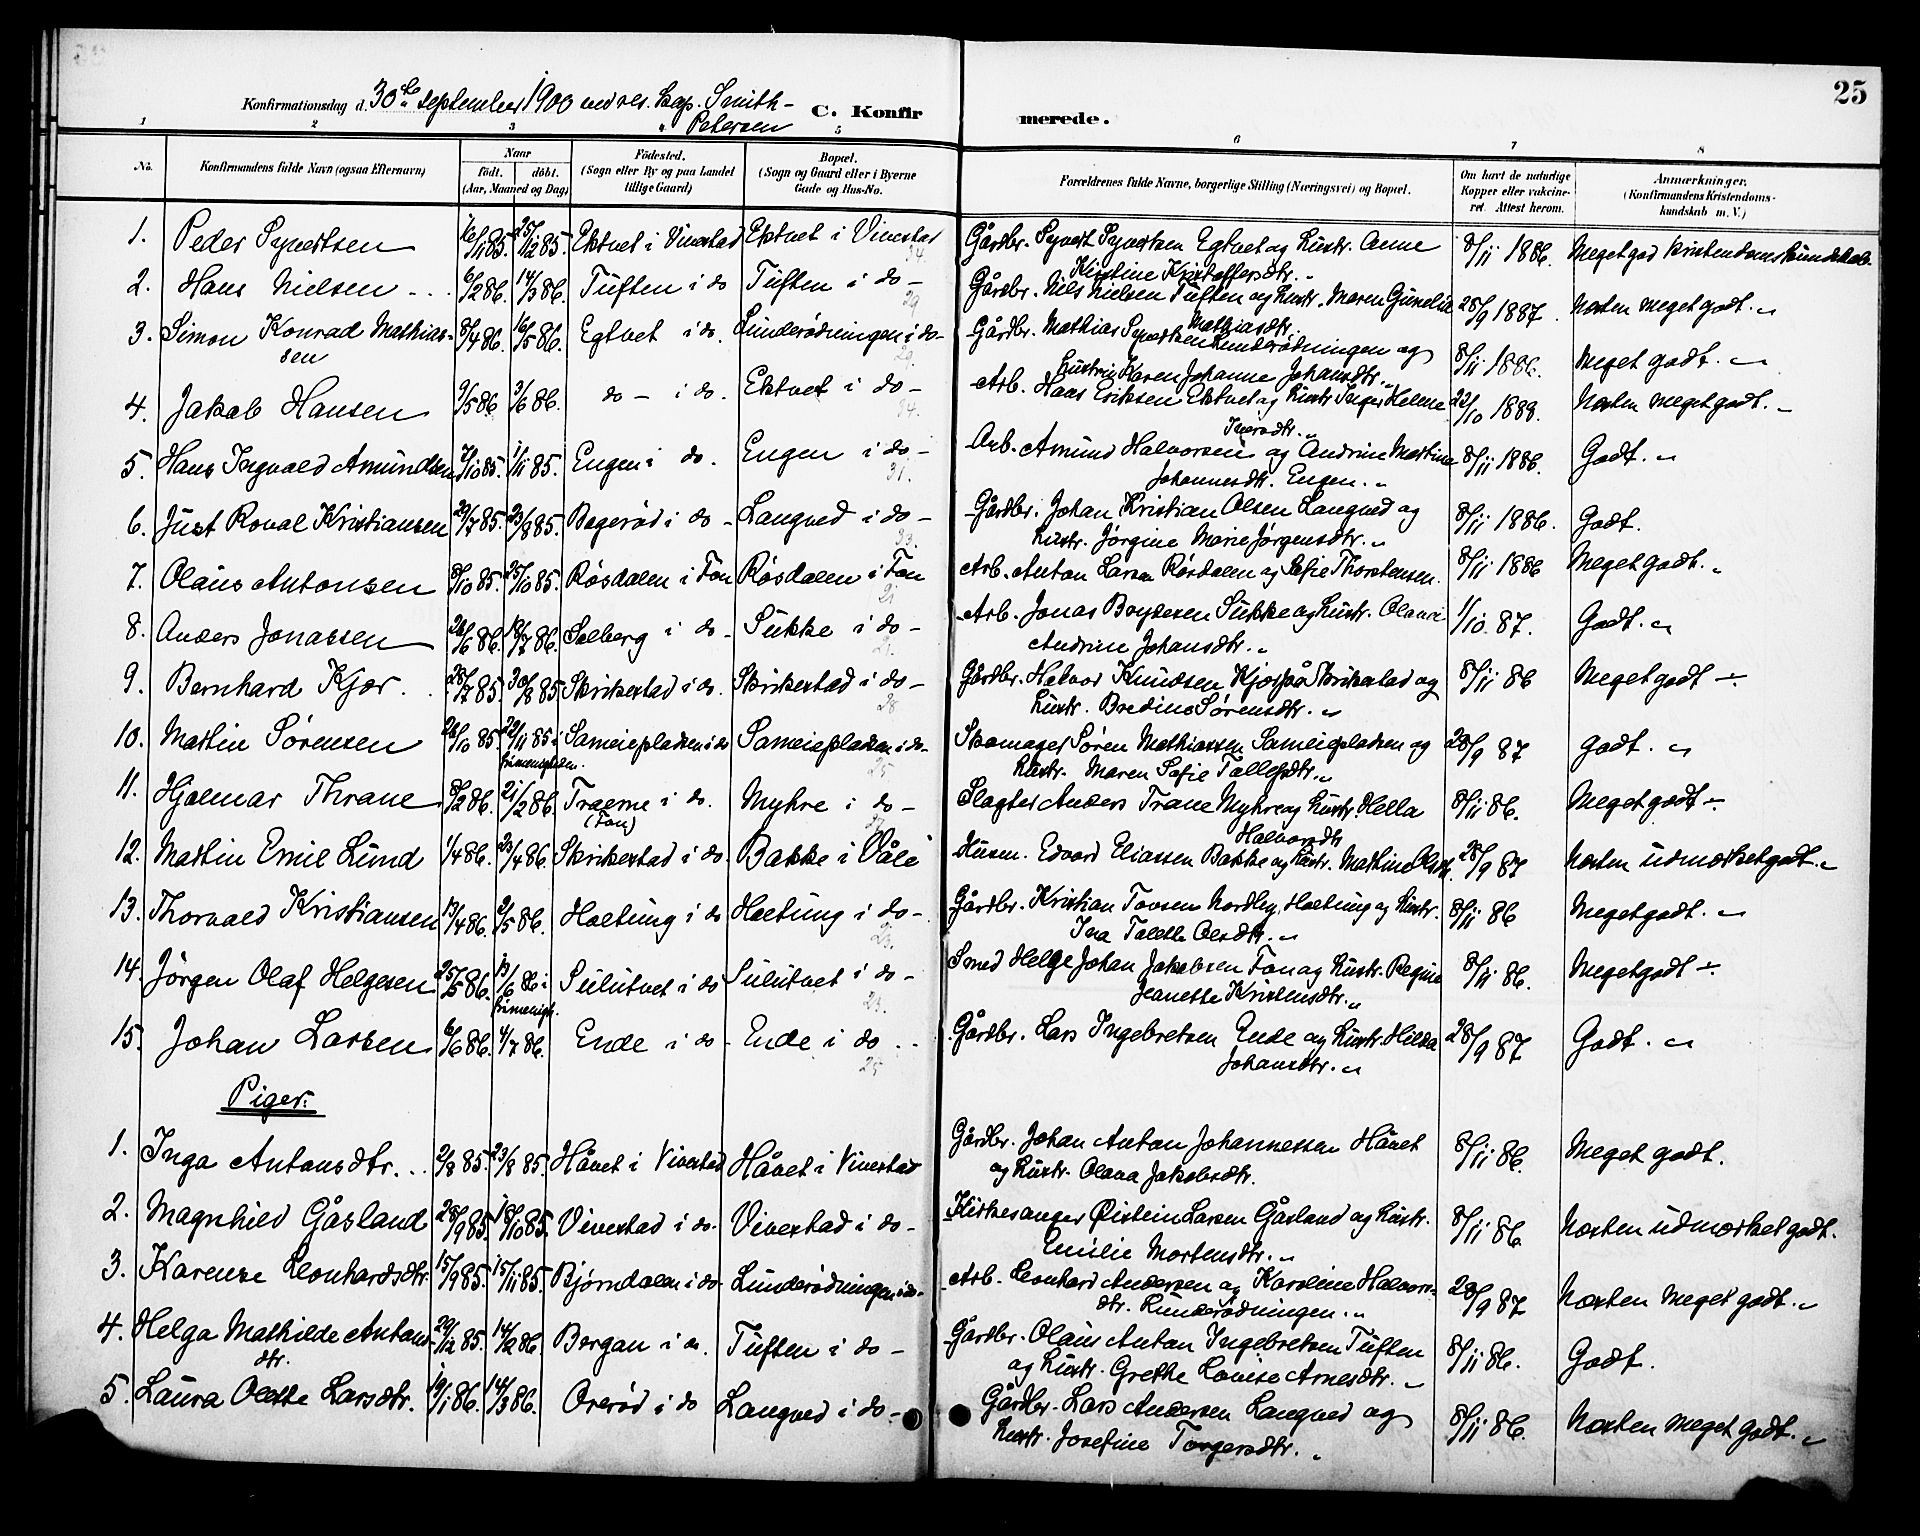 25
Konfirmationsdag d. 30te september 1900 ved res. kap. Smith-
Petersen
C. Konfirmerede.
1 2 3 4 5 6 7 8
No. Konfirmandens fulde Navn (ogsaa Efternavn) Naar födt. döbt. (Aar, Maaned og Dag) Födested. (Sogn eller By og paa Landet tillige Gaard) Bopæl. (Sogn og Gaard eller i Byerne Gade og Hus-No. Forældrenes fulde Navne, borgerlige Stilling (Næringsvei) og Bopæl. Om havt de naturlige Kopper eller vakcineret. Attest herom. Anmærkninger. (Konfirmandens Kristendomskundskab m. V.)
1. Peder Syvertsen 16/11 85. 25/12 85. Ektvet i Vivestad Ektvet i Vivestad Gårdbr. Syvert Syvertsen Egtvet og Hustr. Anne 8/11 1886. Meget god kristendomskundskab.
34. Kristine Kristoffersdtr. „
2. Hans Nielsen 6/2 86. 14/3 86. Tuften i do Tuften i do - Gårdbr. Nils Nielsen Tuften og Hustr. Maren Gunelia 28/9 1887. Næsten meget godt. „
29 Mathiasdtr.
3. Simon Konrad Mathias- 8/4 86. 16/5 86. Egtvet i do. Lunderødningen i do- Gårdbr. Mathias Syvertsen Lunderødningen og 8/11 1886. Meget godt. „
sen Hustru Karen Johanne Johansdtr. „
4. Jakob Hansen 9/5 86. 3/6 86. do - i do. Ektvet i do - Arb. Hans Eriksen Ektvet og Hustr Inger Helene 22/10 1888. Næsten meget godt. „
34. Iversdtr. „
5. Hans Ingvald Amundsen 7/10 85. 1/11 85. Engen i do. Engen i do - Arb. Amund Halvorsen og Andrine Martine 8/11 1886. Godt. „
31. Johannesdtr. Engen. „
6. Just Roval Kristiansen 29/7 85. 23/8 85. Bagerød i do - Langved i do - Gårdbr. Johan Kristian Olsen Langved og 8/11 1886. Godt.
33. Hustr. Jørgine Marie Jørgensdtr. „
7. Olaus Antonsen 8/10 85. 25/10 85. Røsdalen i Fon Røsdalen i Fon Arb. Anton Larsen Røsdalen og Sofie Thorstensen. 8/11 1886 Meget godt. „
21
8. Anders Jonassen 26/6 86. 18/7 86. Solberg i do - Sukke i do - Arb. Jonas Brynsen Sukke og Hustr. Olava 1/10. 87. Godt. „
21. Andrine Johansdtr. „
9. Bernhard Kjær. 28/7 85. 30/8 85 Skrikestad i do. Skrikestad i do - Gårdbr. Halvor Knudsen Kjær på Skrikestad og 8/11 86 Meget godt ÷
28. Hustr. Bredine Sørensdtr. „
10. Martin Sørensen 26/10 85. 22/11 85 i Sameiepladsen i do Sameiepladsen i do- Skomager Søren Mathiassen Sameiepladsen og 28/9 87 Godt. „
frimenigheden. 25 Hustr. Maren Sofie Tollefsdtr. „
11. Hjalmar Thrane 8/2 86. 21/2 86. Træerne i do. Myhre i do - Slagter Anders Trane Myhre og Hustr. Hella 8/11 86. Meget godt ÷
(Fon) 27 Halvorsdtr
12. Martin Emil Lund 1/4 86. 23/4 86. Skrikestad i do. Bakke i Våle Husm. Edvard Eliassen Bakke og Hustr. Mathine Olsdtr. 28/9 87 Næsten udmærket godt. „
13. Thorvald Kristiansen 13/4 86. 2/5 86. Holtung i do Holtung i do - Gårdbr. Kristian Tovsen Nordby, Holtung og Hustr. 8/11 86 Meget godt. „
23. Ina Talette Olsdtr. „
14. Jørgen Olaf Helgesen 25/5 86. 13/6 86 i Sulutvet i do Sulutvet i do - Smed Helge Johan Jakobsen Fon og Hustr. Regine 8/11 86. Meget godt ÷
frimenigh. 23. Jeanette Kristensdtr. „
15. Johan Larsen 6/6 86. 4/7 86. Ende i do - Ende i do Gårdbr. Lars Ingebretsen Ende og Hustr. Hilda 28/9 87 Godt. „
25 Johansdtr. „
Piger:
1. Inga Antonsdtr. 2/8 85. 23/8 85. Håvet i Vivestad Håvet i Vivestad Gårdbr. Johan Anton Johannessen Håvet 8/11 86. Meget godt.
og Hustr. Olava Jakobsdtr.
2. Magnhild Gåsland 28/9 85. 18/10 85. Vivestad i do. Vivestad i do - Kirkesanger Øistein Larsen Gåsland og Hustr. 8/11 86 Næsten udmærket godt.
Emilie Mortensdtr. „
3. Karense Leonhardsdtr. 15/9 85. 15/11 85. Bjørndalen i do. Lunderødningen i do- Arb. Leonhard Andersen og Karoline Halvors- 28/9 87 Næsten meget godt. „
dtr. Lunderødningen. „
4. Helga Mathilde Antons- 29/12 85. 14/2 86. Borgan i do. Tuften i do - Gårdbr. Olaus Anton Ingebretsen Tuften 8/11 86. Godt.
dtr. og Hustr. Grethe Lovise Arnesdtr. „
5. Laura Olette Larsdtr. 19/1 86. 14/3 86. Orerød i do Langved i do - Gårdbr. Lars Andersen Langved og 8/11 86. Næsten meget godt. „
Hustr. Josefine Torgersdtr. „